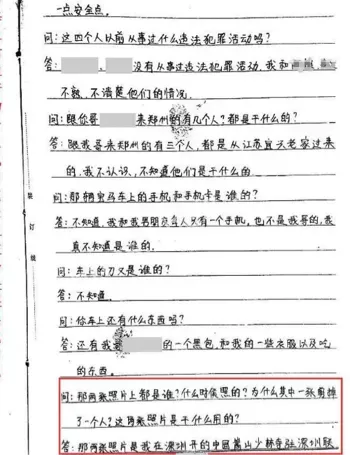 一点安全点。
问:这四个人以前从事过什么违法犯罪活动吗?
答: , 没有从事过违法犯罪活动,我和
不熟,不清楚他们的情况。
问:跟你哥 来郑州的有几个人?都是干什么的?
答:跟我哥来郑州的有三个人,都是从江苏宜兴老家过来
的,我不认识,不知道他们是干什么的。
问:那辆宝马车上的手机和手机卡是谁的?
答:不知道,我和我男朋友每人只有一个手机,也不是我哥的,我
真不知道是谁的。
问:车上的刀又是谁的?
答:不知道。
问:你车上还有什么东西吗?
答:还有我 的一个黑包,和我的一些衣服以及吃
的东西。
问:那两张照片上都是谁?什么时候照的?为什么其中一张剪掉
了一个人?这两张照片是干什么用的?
答:那两张照片是我在深圳开的中国嵩山少林寺驻深圳联
装
订
线